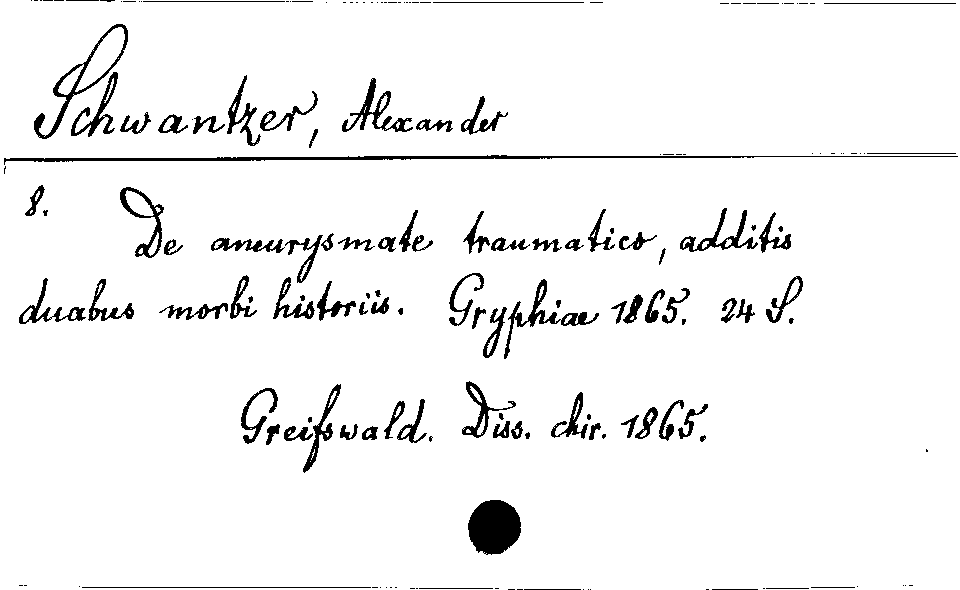 Schwantzer, Alexander
8. De aneurysmate traumatico, additis
duabus morbi historiis. Gryphiae 1865. 24 S.
Greifswald. Diss. chir. 1865.